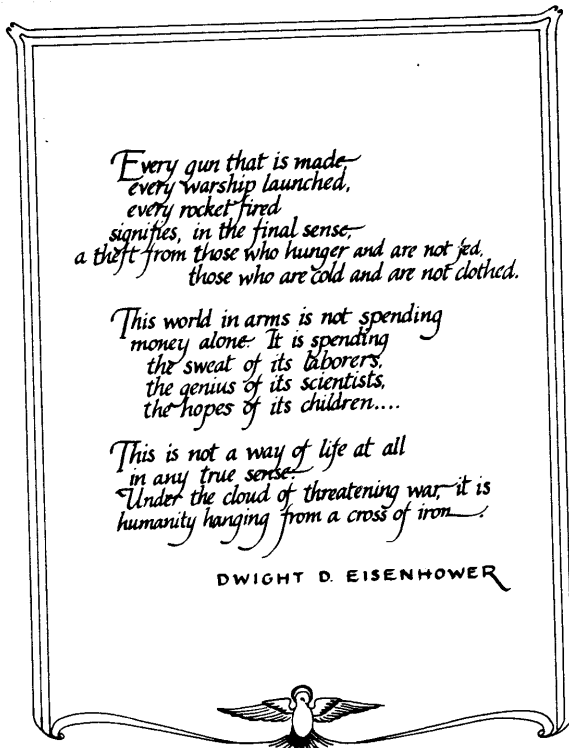 Every gun that is made
every warship launched,
every rocket fired
signifies, in the final sense,
a theft from those who hunger and are not fed,
those who are cold and are not clothed.
This world in arms is not spending
money alone. It is spending
the sweat of its laborers,
the genius of its scientists,
the hopes of its children....
This is not a way of life at all
in any true sense.
Under the cloud of threatening war, it is
humanity hanging from a cross of iron.
DWIGHT D. EISENHOWER